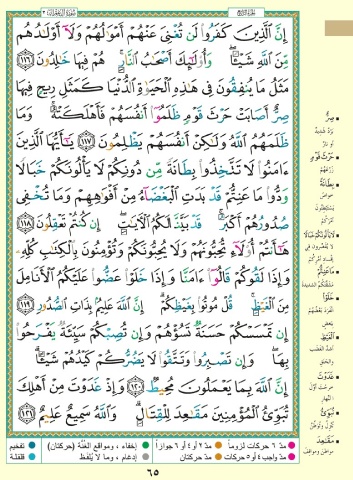 سُورَةُ آلِ عِمْرَان ٣
الجُزْءُ الرَّابِعُ
إِنَّ ٱلَّذِينَ كَفَرُوا۟ لَن تُغْنِىَ عَنْهُمْ أَمْوَٰلُهُمْ وَلَآ أَوْلَـٰدُهُم
مِّنَ ٱللَّهِ شَيْـًٔا ۖ وَأُو۟لَـٰٓئِكَ أَصْحَـٰبُ ٱلنَّارِ ۚ هُمْ فِيهَا خَـٰلِدُونَ ﴿١١٦﴾
مَثَلُ مَا يُنفِقُونَ فِى هَـٰذِهِ ٱلْحَيَوٰةِ ٱلدُّنْيَا كَمَثَلِ رِيحٍ فِيهَا
صِرٌّ أَصَابَتْ حَرْثَ قَوْمٍ ظَلَمُوٓا۟ أَنفُسَهُمْ فَأَهْلَكَتْهُ ۚ وَمَا
ظَلَمَهُمُ ٱللَّهُ وَلَـٰكِنْ أَنفُسَهُمْ يَظْلِمُونَ ﴿١١٧﴾ يَـٰٓأَيُّهَا ٱلَّذِينَ
ءَامَنُوا۟ لَا تَتَّخِذُوا۟ بِطَانَةً مِّن دُونِكُمْ لَا يَأْلُونَكُمْ خَبَالًا
وَدُّوا۟ مَا عَنِتُّمْ قَدْ بَدَتِ ٱلْبَغْضَآءُ مِنْ أَفْوَٰهِهِمْ وَمَا تُخْفِى
صُدُورُهُمْ أَكْبَرُ ۚ قَدْ بَيَّنَّا لَكُمُ ٱلْـَٔايَـٰتِ ۖ إِن كُنتُمْ تَعْقِلُونَ ﴿١١٨﴾
هَـٰٓأَنتُمْ أُو۟لَآءِ تُحِبُّونَهُمْ وَلَا يُحِبُّونَكُمْ وَتُؤْمِنُونَ بِٱلْكِتَـٰبِ كُلِّهِۦ
وَإِذَا لَقُوكُمْ قَالُوٓا۟ ءَامَنَّا وَإِذَا خَلَوْا۟ عَضُّوا۟ عَلَيْكُمُ ٱلْأَنَامِلَ
مِنَ ٱلْغَيْظِ ۚ قُلْ مُوتُوا۟ بِغَيْظِكُمْ ۗ إِنَّ ٱللَّهَ عَلِيمٌۢ بِذَاتِ ٱلصُّدُورِ ﴿١١٩﴾
إِن تَمْسَسْكُمْ حَسَنَةٌ تَسُؤْهُمْ وَإِن تُصِبْكُمْ سَيِّئَةٌ يَفْرَحُوا۟
بِهَا ۖ وَإِن تَصْبِرُوا۟ وَتَتَّقُوا۟ لَا يَضُرُّكُمْ كَيْدُهُمْ شَيْـًٔا ۗ
إِنَّ ٱللَّهَ بِمَا يَعْمَلُونَ مُحِيطٌ ﴿١٢٠﴾ وَإِذْ غَدَوْتَ مِنْ أَهْلِكَ
تُبَوِّئُ ٱلْمُؤْمِنِينَ مَقَـٰعِدَ لِلْقِتَالِ ۗ وَٱللَّهُ سَمِيعٌ عَلِيمٌ ﴿١٢١﴾
صِرٌّ
بَرْدٌ شَدِيدٌ
أو نارٌ
حَرْثَ قَوْمٍ
زَرْعَهُمْ
بِطَانَةً
خواصّ
يَسْتَبْطِنُون
أَمْرَكُم
لَا يَأْلُونَكُمْ خَبَالًا
لا يُقَصِّرونَ في
إفساد أمْرِكُم
مَا عَنِتُّمْ
مَشَقَّتَكُم الشديدة
خَلَوْا
انفرد بعضُهُم
ببعض
ٱلْغَيْظِ
أشدّ الغَضَب
والحَنَق
غَدَوْتَ
خرجت أوّل
النهار
تُبَوِّئُ
تُنْزِلُ وتُوَطِّنُ
مَقَاعِدَ
مواطن ومواقف
مدّ ٦ حركات لزوماً
مدّ ٢ أو ٤ أو ٦ جوازاً
إخفاء، ومواقع الغُنَّة (حركتان)
تفخيم
مدّ واجب ٤ أو ٥ حركات
مدّ حركتان
إدغام، وما لا يُلفَظ
قلقلة
٦٥